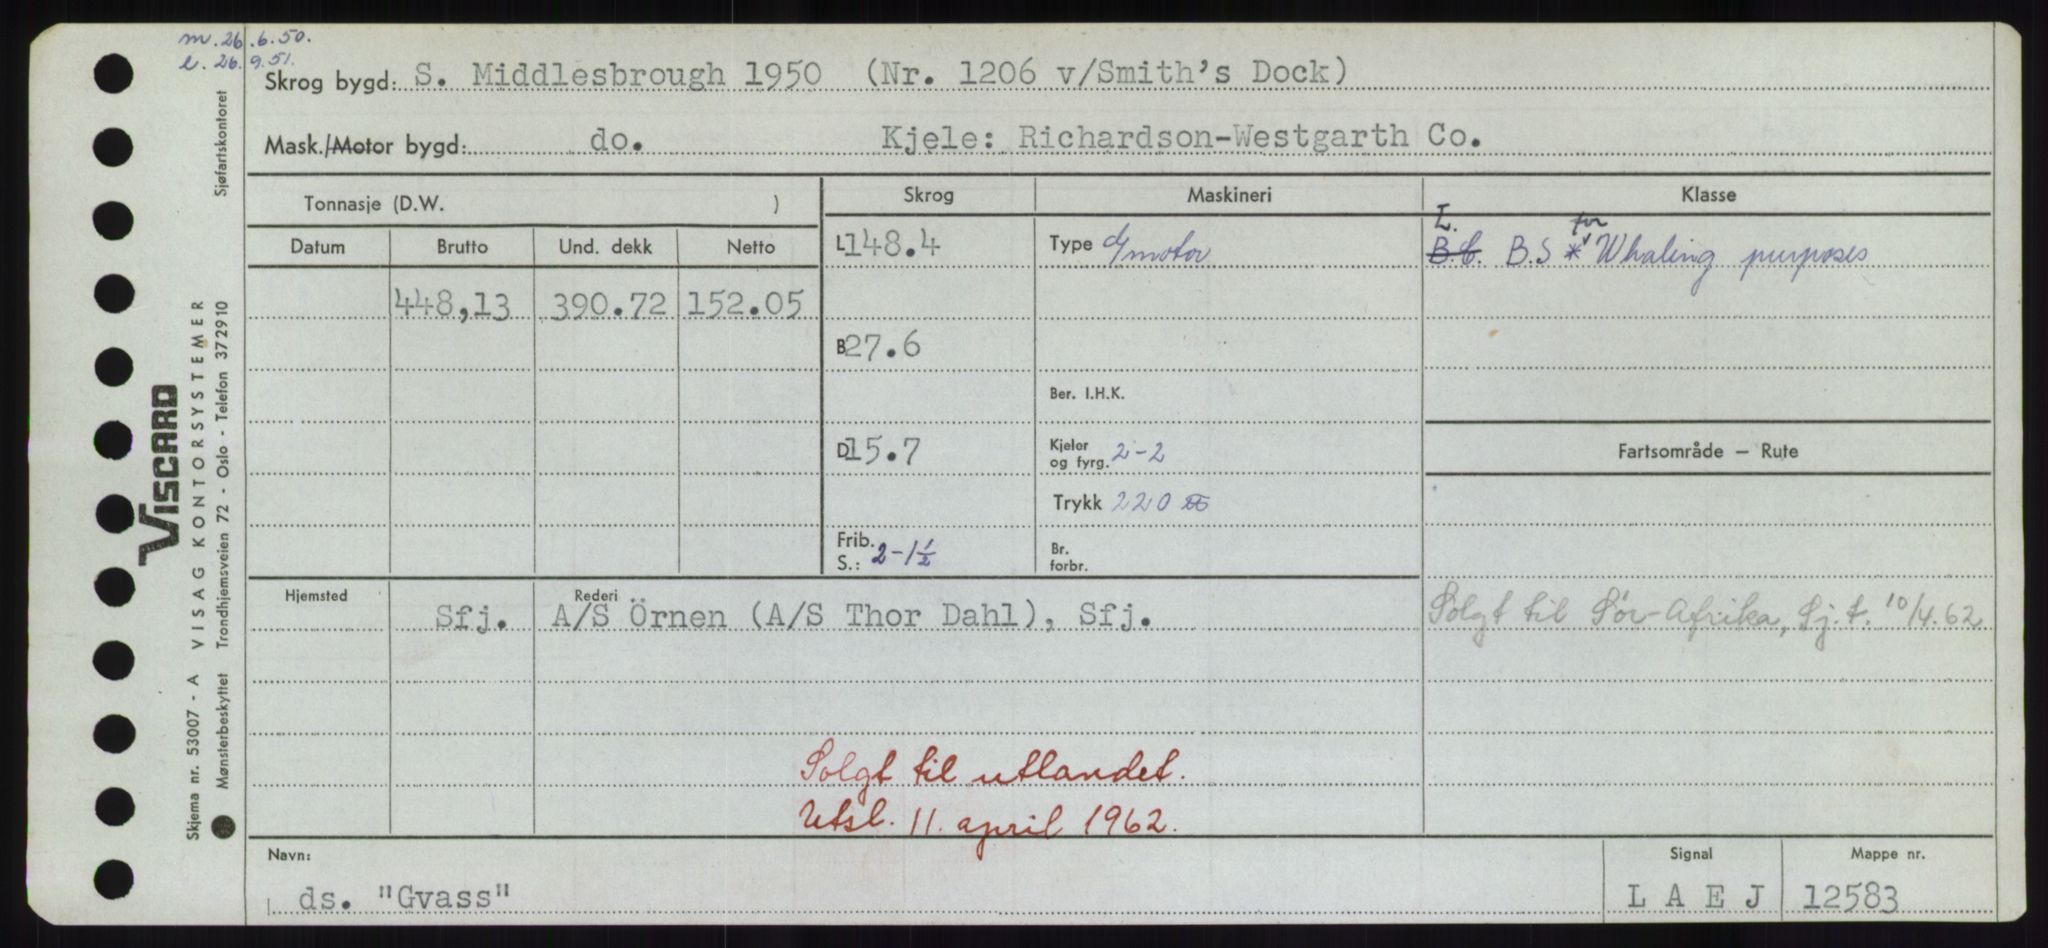 m. 26.6.50.
e. 26.9.51.
Skrog bygd: S. Middlesbrough 1950 (Nr. 1206 v/Smith's Dock)
Mask./Motor bygd: do. Kjele: Richardson-Westgarth Co.
Tonnasje (D.W. )
Skrog Maskineri Klasse
Datum Brutto Und. dekk Netto
448,13 390.72 152.05
L 148.4
B 27.6
D 15.7
Frib.
S.: 2-1½
Type motor
Ber. I.H.K.
Kjeler
og fyrg. 2-2
Trykk 220
Br.
forbr.
L. for
B.C. B.S * Whaling purposes
Fartsområde – Rute
Solgt til Sør-Afrika, Sj.t. 10/4.62
Hjemsted Rederi
Sfj. A/S Örnen (A/S Thor Dahl), Sfj.
Solgt til utlandet.
Utsl. 11. april 1962.
Navn: Signal Mappe nr.
ds. "Gvass" L A E J 12583
Viscard
Skjema nr. 53007 - A VISAG KONTORSYSTEMER
Mønsterbeskyttet Trondhjemsveien 72 - Oslo - Telefon 372910
Sjøfartskontoret